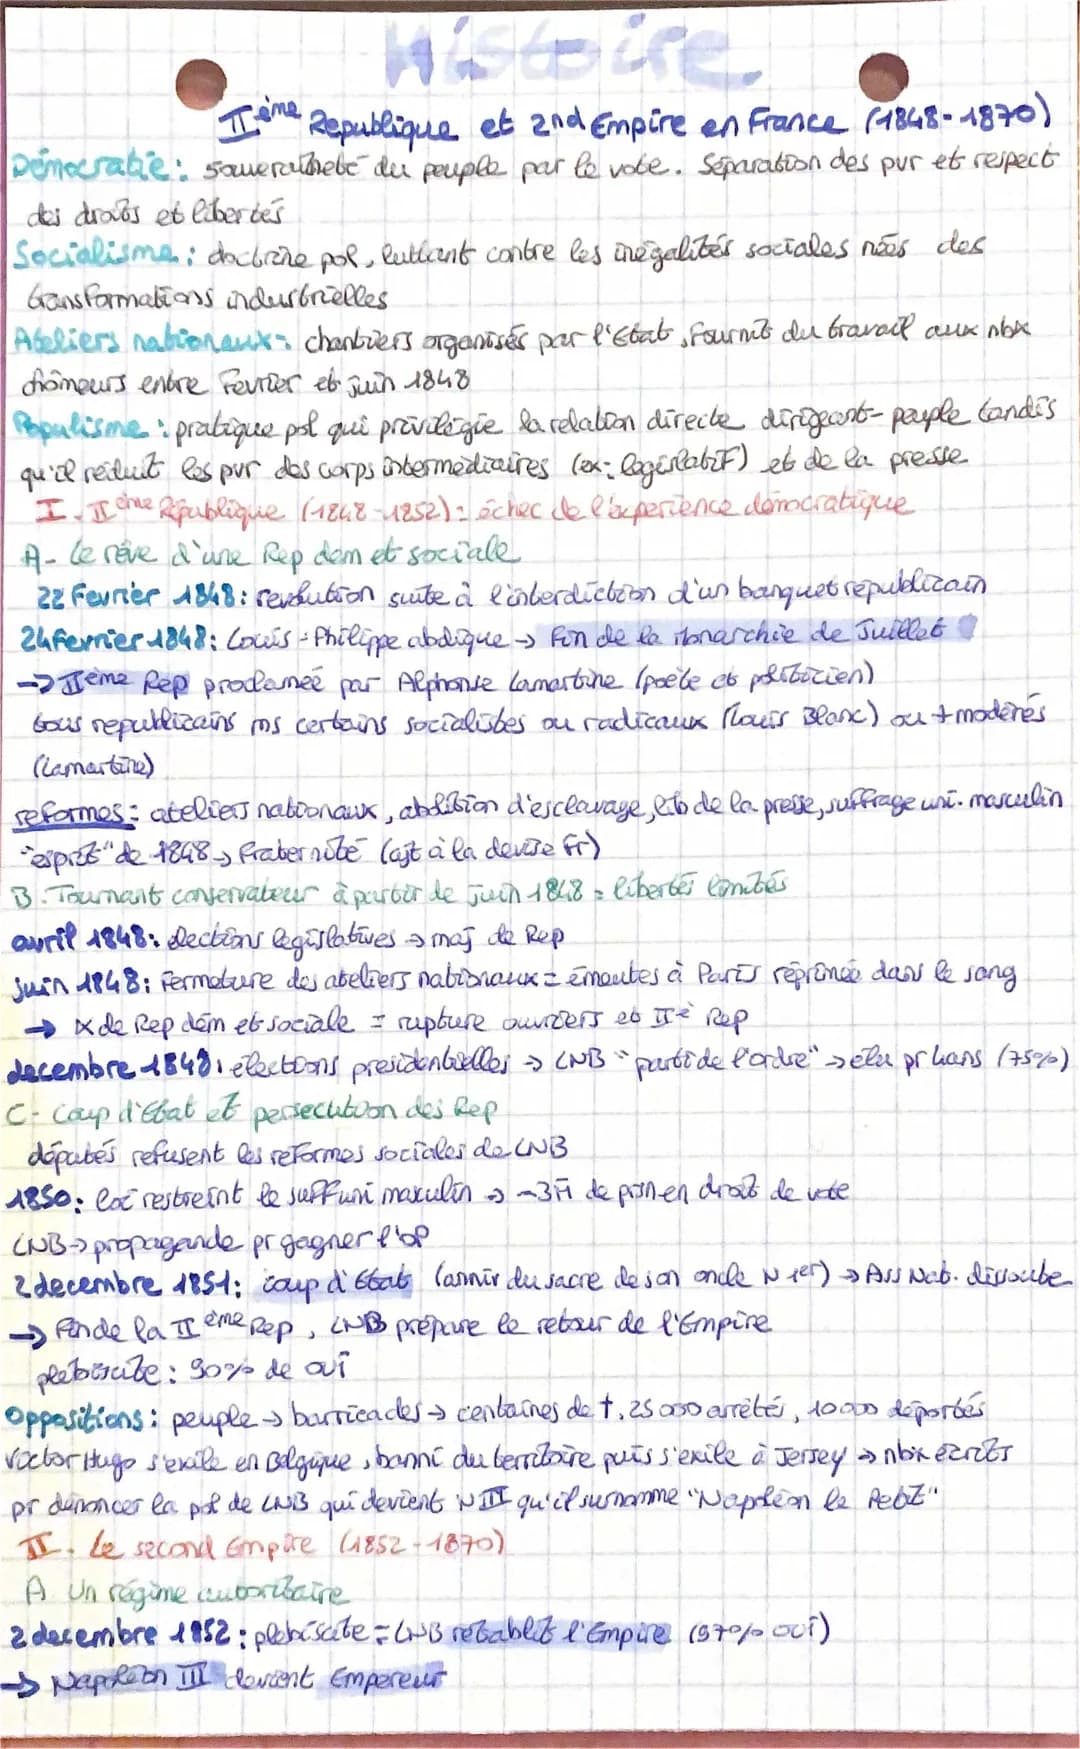 Histoire
IIème République et 2nd Empire en France (1848-1870)
Démocratie : souveraineté du peuple par le vote. Séparation des pvr et respect
des droits et libertés
Socialisme : doctrine pol, luttant contre les inégalités sociales nées des
transformations industrielles
Ateliers nationaux : chantiers organisés par l'Etat, fournit du travail aux nbx
chômeurs entre Février et juin 1848
Populisme : pratique pol qui privilégie la relation directe dirigeant-peuple tandis
qu'il réduit les pvr des corps intermédiaires (ex: législatif) et de la presse
I. IIème République (1848-1852) : échec de l'expérience démocratique
A- Le rêve d'une Rep dem et sociale
22 Fevrier 1848: revolution suite à l'interdiction d'un banquet républicain
24 Fevrier 1848: Louis-Philippe abdique → Fin de la Monarchie de Juillet
→ IIème Rep proclamée par Alphonse Lamartine (poète et politicien)
tous republicains ms certains socialistes ou radicaux (Louis Blanc) ou + modérés
(Lamartine)
reformes : ateliers nationaux, abolition d'esclavage, lib de la presse, suffrage uni. masculin
"esprit" de 1848 → Fraternité (ajt à la devise Fr)
B. Tournant conservateur à partir de juin 1848 = libertés limités
avril 1848: élections législatives → maj de Rep
juin 1848: Fermeture des ateliers nationaux = émeutes à Paris réprimée dans le sang
→ x de Rep dém et sociale = rupture ouvriers et IIè Rep
decembre 1848: élections présidentielles → LNB "parti de l'ordre" → élu pr 4ans (75%)
C- Coup d'Etat et persecution des Rep
députés refusent les reformes sociales de LNB
1850: loi restreint le suff uni masculin → -3M de prsn en droit de vote
LNB → propagande pr gagner l'op
2 decembre 1851: coup d'Etat (anniv du sacre de son oncle N 1er) → Ass Nat. dissoute
→ Fin de la IIème Rep, LNB prépare le retour de l'Empire
plébiscite : 90% de oui
Oppositions : peuple → barricades → centaines de †, 25 000 arrêtés, 10 000 déportés
Victor Hugo s'exile en Belgique, banni du territoire puis s'exile à Jersey → nbx écrits
pr dénoncer la pol de LNB qui devient N III qu'il surnomme "Napoléon le Petit"
II. Le second Empire (1852-1870)
A Un régime autoritaire
2 decembre 1852 : plebiscite = LNB rétablit l'Empire (97% oui)
→ Napoléon III devient Empereur